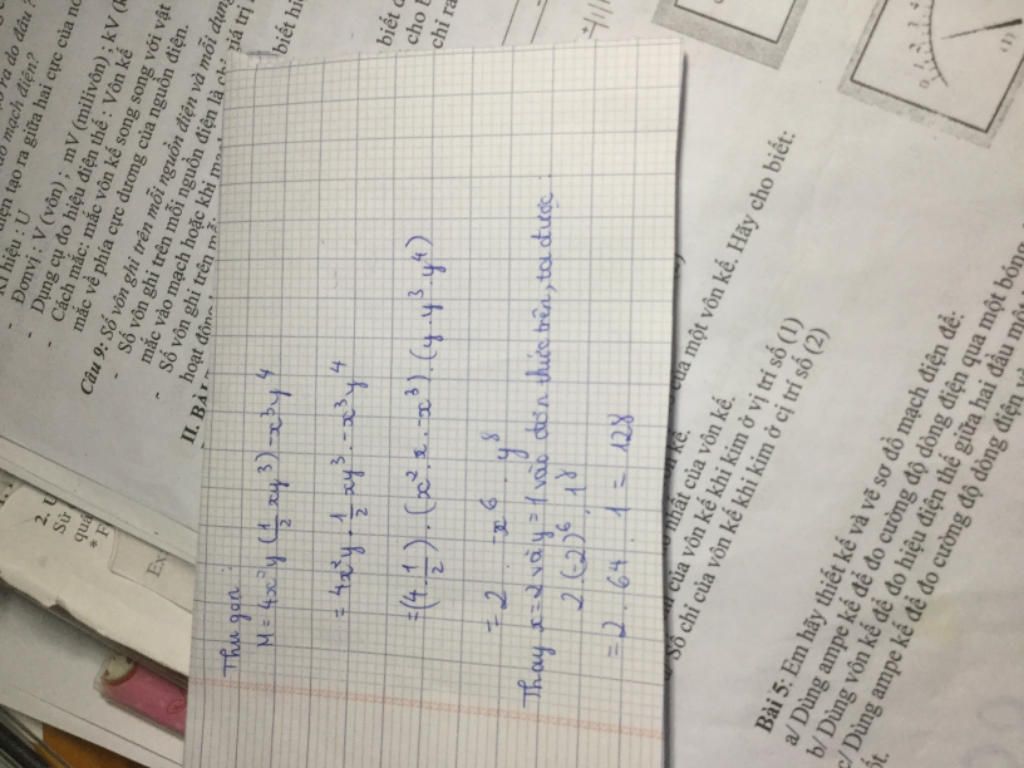 Thu gọn :
M = 4x²y (1/2 xy³) - x³y⁴
= 4x²y . 1/2 xy³ . - x³y⁴
= (4 . 1/2) . (x² . x . - x³) . (y . y³ . y⁴)
= 2 . - x⁶ . y⁸
Thay x = 2 và y = 1 vào đơn thức trên, ta được :
2 (-2)⁶ . 1⁸
= 2 . 64 . 1 = 128
ra do đâu ?
mạch điện?
điện tạo ra giữa hai cực của
Kí hiệu : U
- Đơn vi : V (vôn) ; mV (milivôn) ; kV
- Dụng cụ đo hiệu điện thế : Vôn kế
- Cách mắc: mắc vôn kế song song với vật
mắc về phía cực dương của nguồn điện.
Câu 9: Số vôn ghi trên mỗi nguồn điện và mỗi dụng
- Số vôn ghi trên mỗi nguồn điện là
mắc vào mạch hoặc khi
- Số vôn ghi trên mỗi
hoạt động
II. BÀI
giá trị
biết hiệu
biết
cho
chỉ ra
2.
Sử
quả
* F
của một vôn kế. Hãy cho biết:
kế.
nhất của vôn kế.
chỉ của vôn kế khi kim ở vị trí số (1)
Số chỉ của vôn kế khi kim ở cị trí số (2)
Bài 5: Em hãy thiết kế và vẽ sơ đồ mạch điện để:
a/ Dùng ampe kế để đo cường độ dòng điện qua một bóng
b/ Dùng vôn kế để đo hiệu điện thế giữa hai đầu một
c/ Dùng ampe kế để đo cường độ dòng điện
ốt.
0
(1)